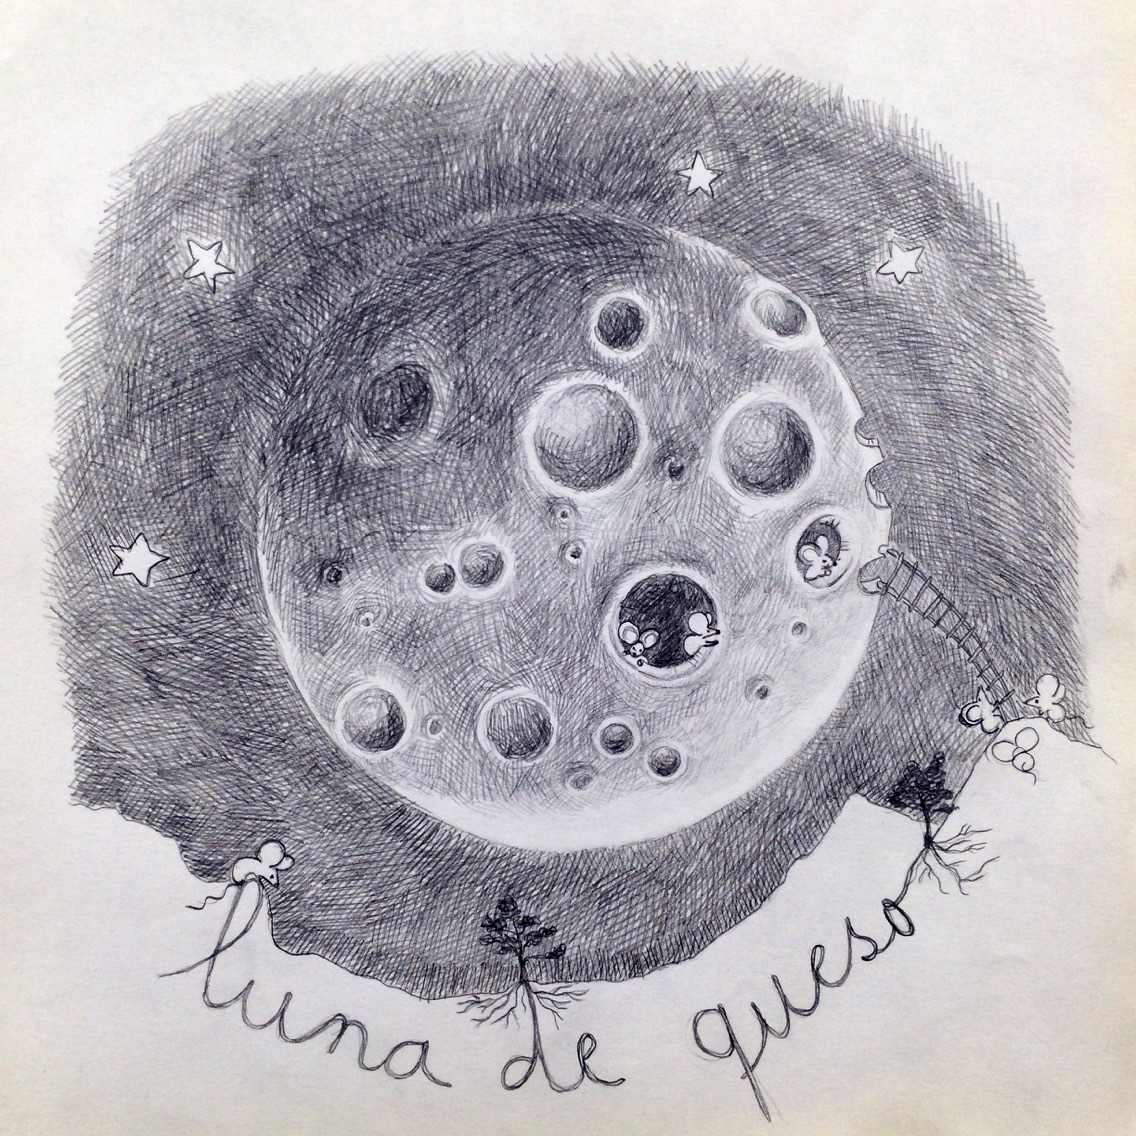 luna de queso